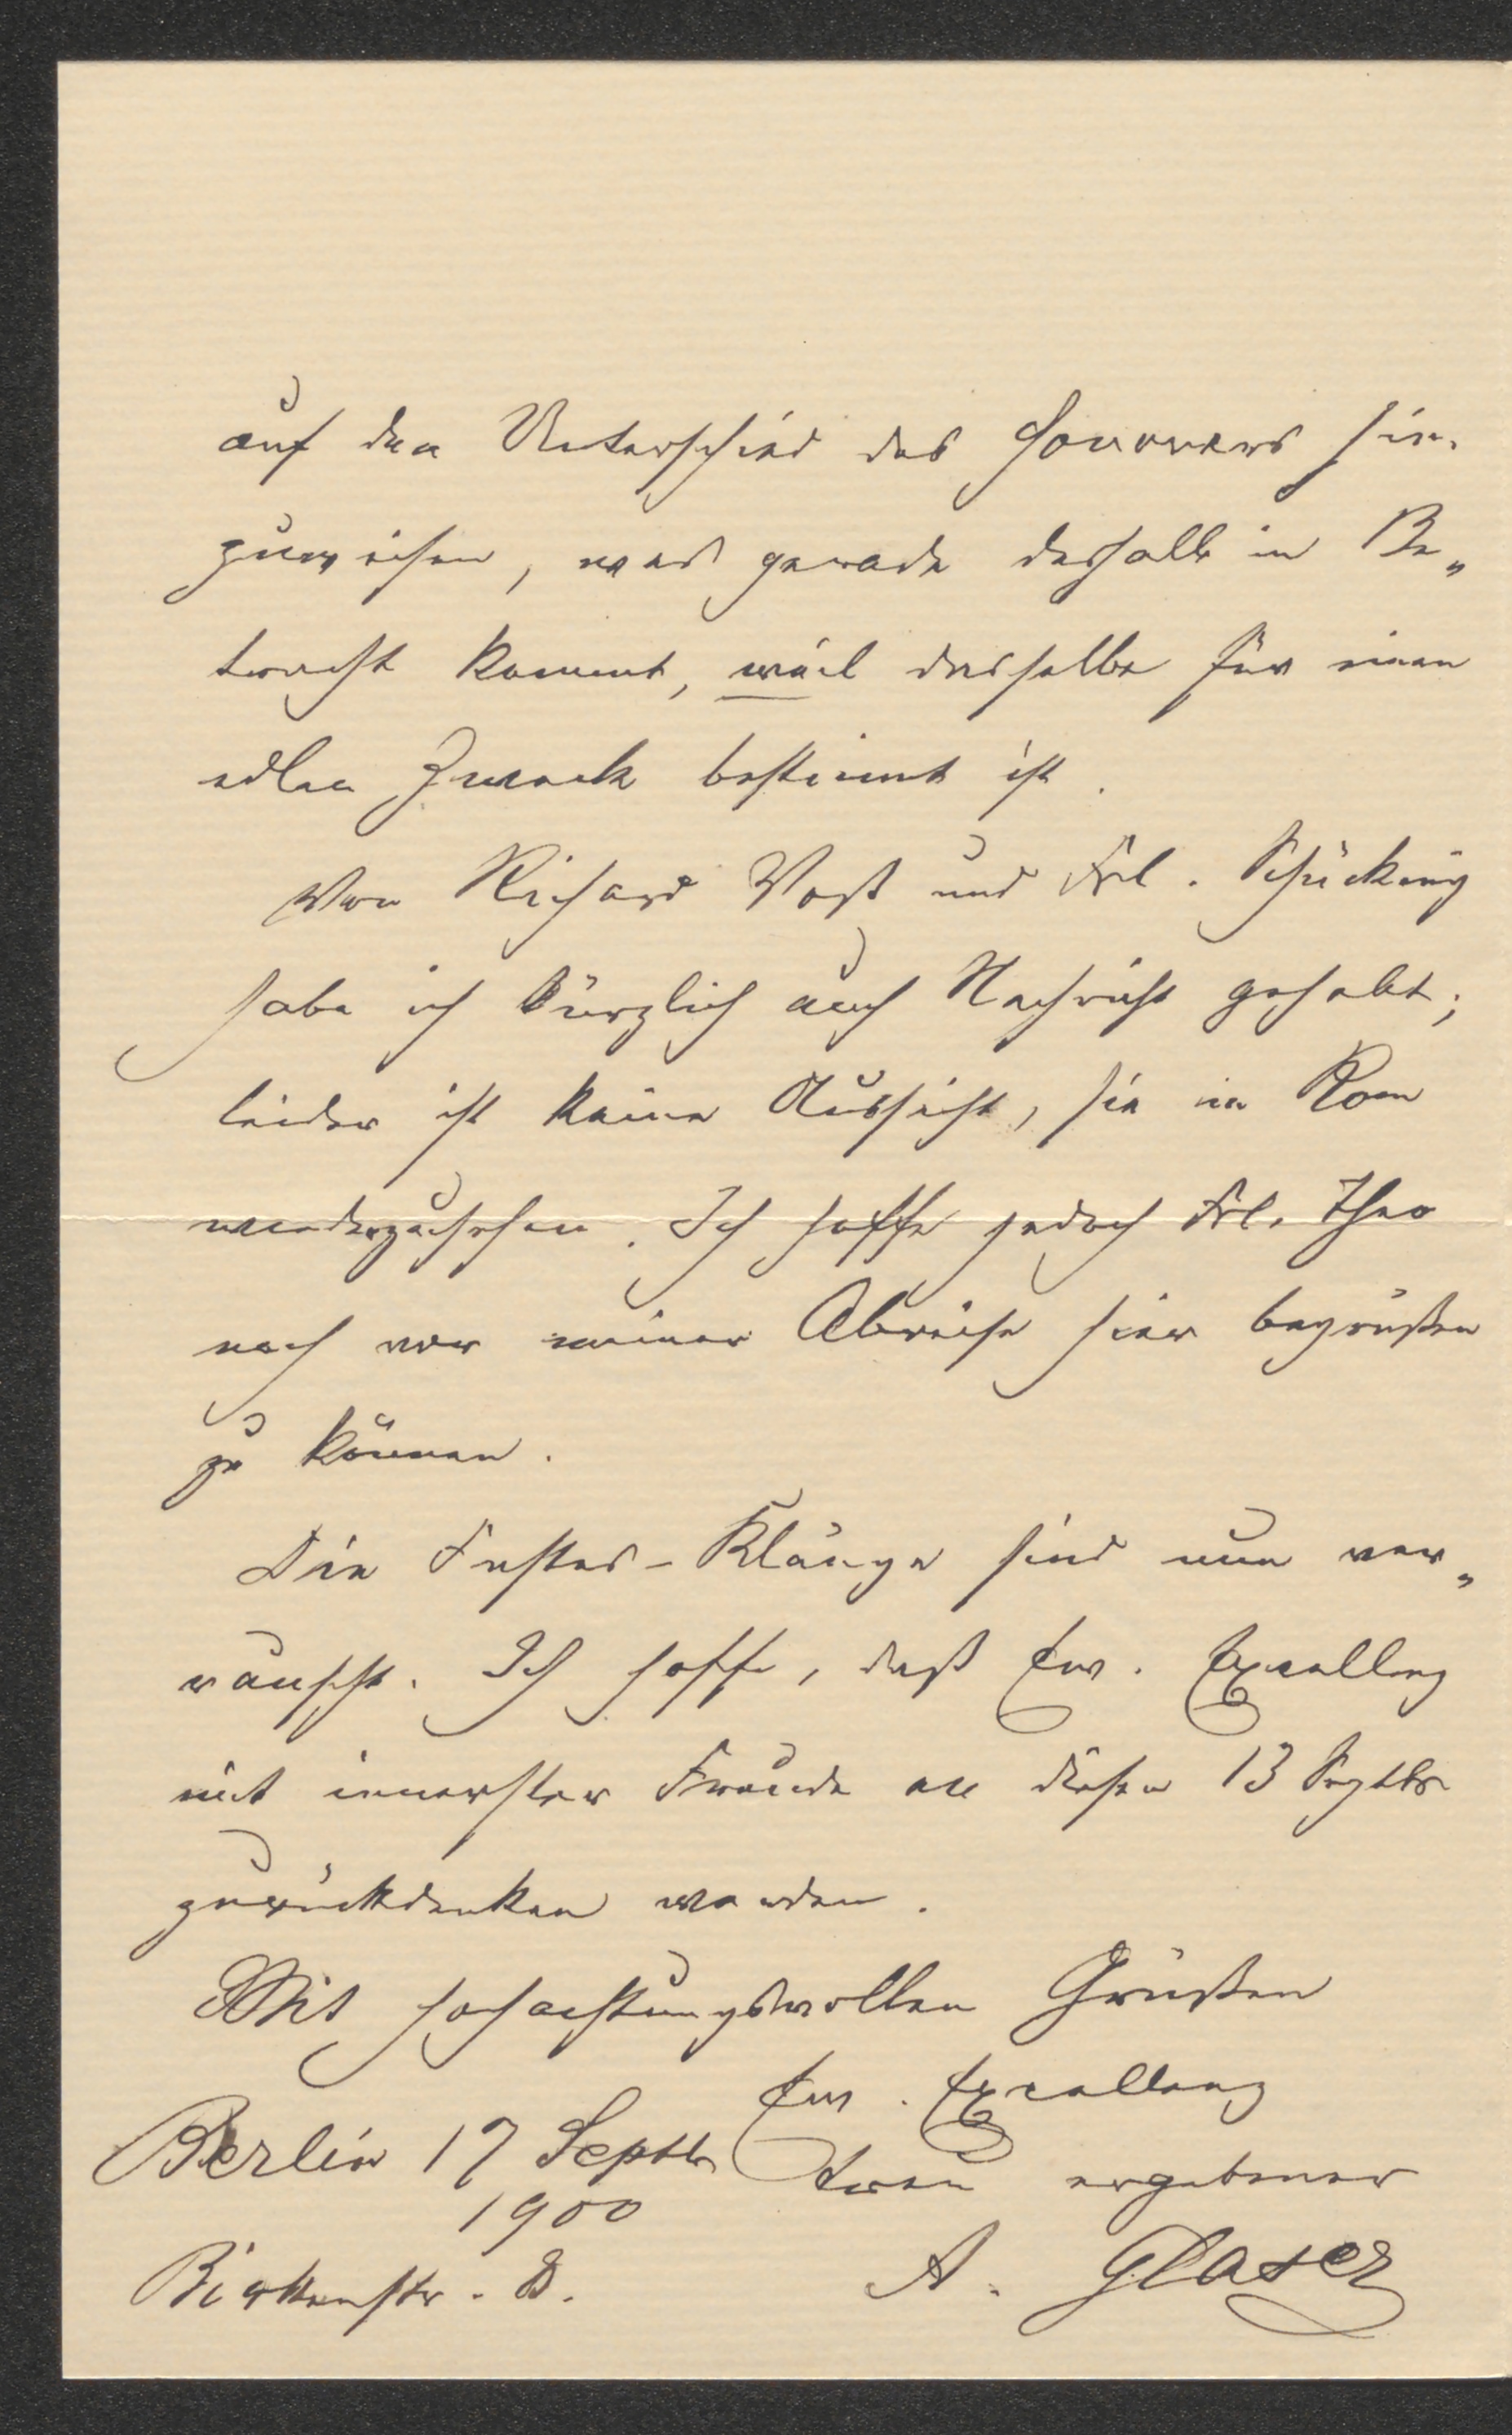 auf den Unterschied des Honorars hin-
zuweisen, was gerade deshalb in Be„
tracht kommt, weil dasselbe für einen
edlen Zweck bestimmt ist.
Von Richard Voß und Frl. Schücking
habe ich kürzlich auch Nachricht gehabt;
leider ist keine Aussicht, sie in Rom
wiederzusehen. Ich hoffe jedoch Frl. Theo
noch vor meiner Abreise hier begrüßen
zu können.
Die Festes-Klänge sind nun ver„
rauscht. Ich hoffe, daß Ew. Excellenz
mit innerster Freude an diesen 13 Septbr
zurückdenken werden.
Mit hochachtungsvollen Grüßen
Ew. Excellenz
treu ergebener
A. Glaser
Berlin 17 Septbr
1900
Birkenstr.